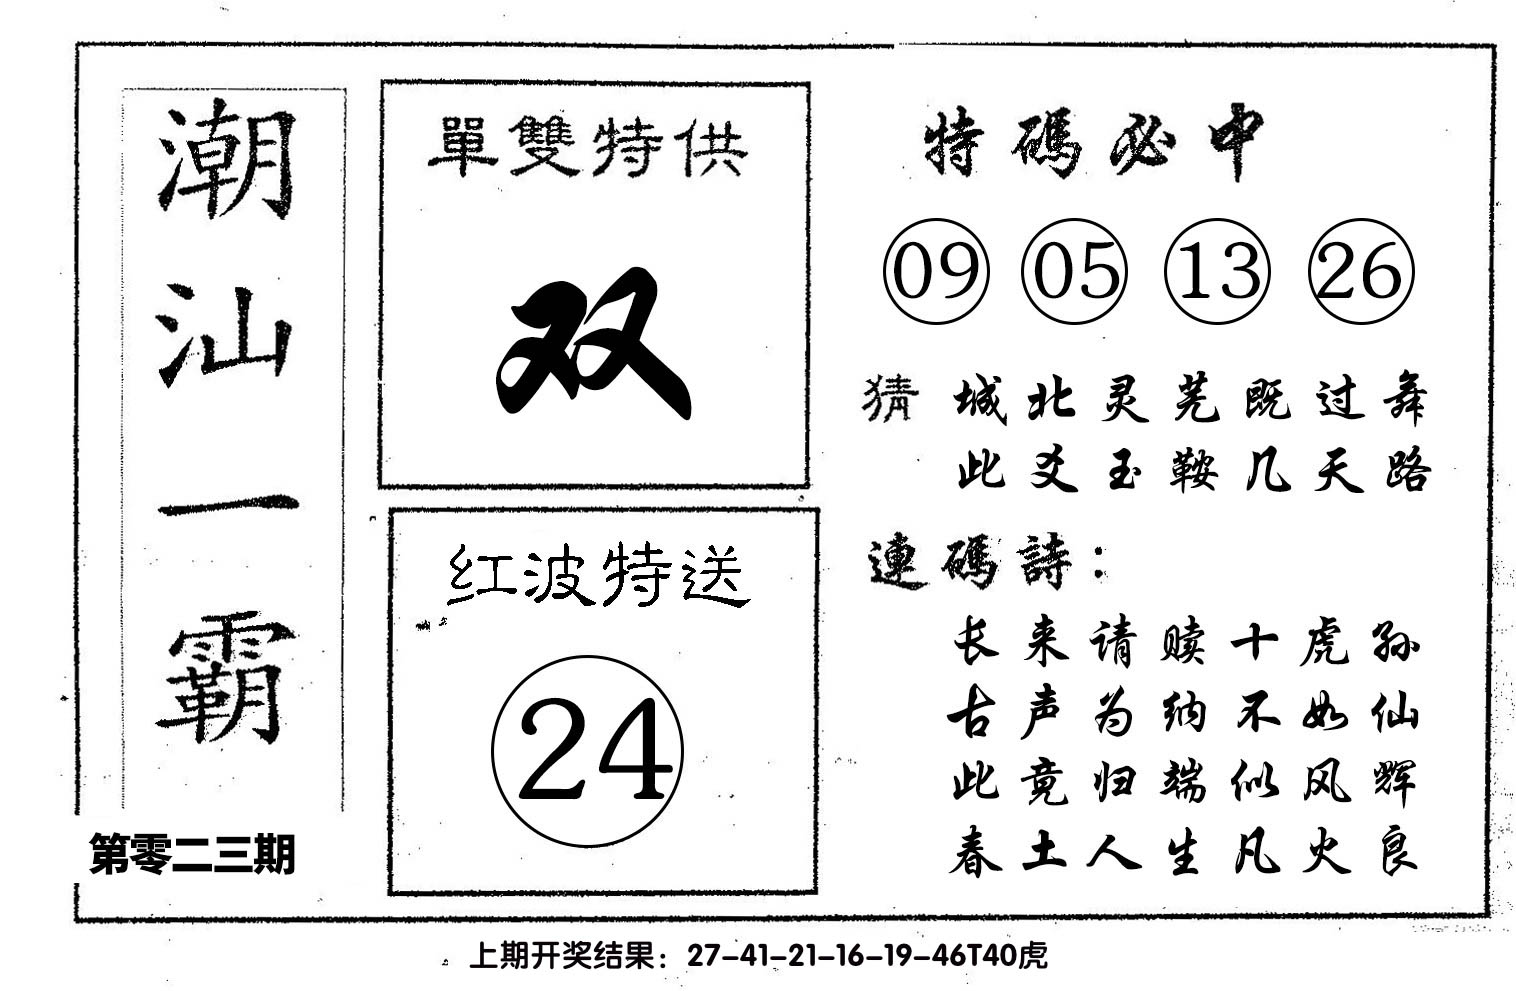 潮汕一霸
第零二三期
單雙特供
双
红波特送
24
特碼必中
09 05 13 26
猜 城北灵芜既过舞
此爻玉鞍几天路
連碼詩：
长来请赎十虎孙
古声为纳不如仙
此竟归端似风辉
春土人生凡火良
上期开奖结果：27-41-21-16-19-46T40虎